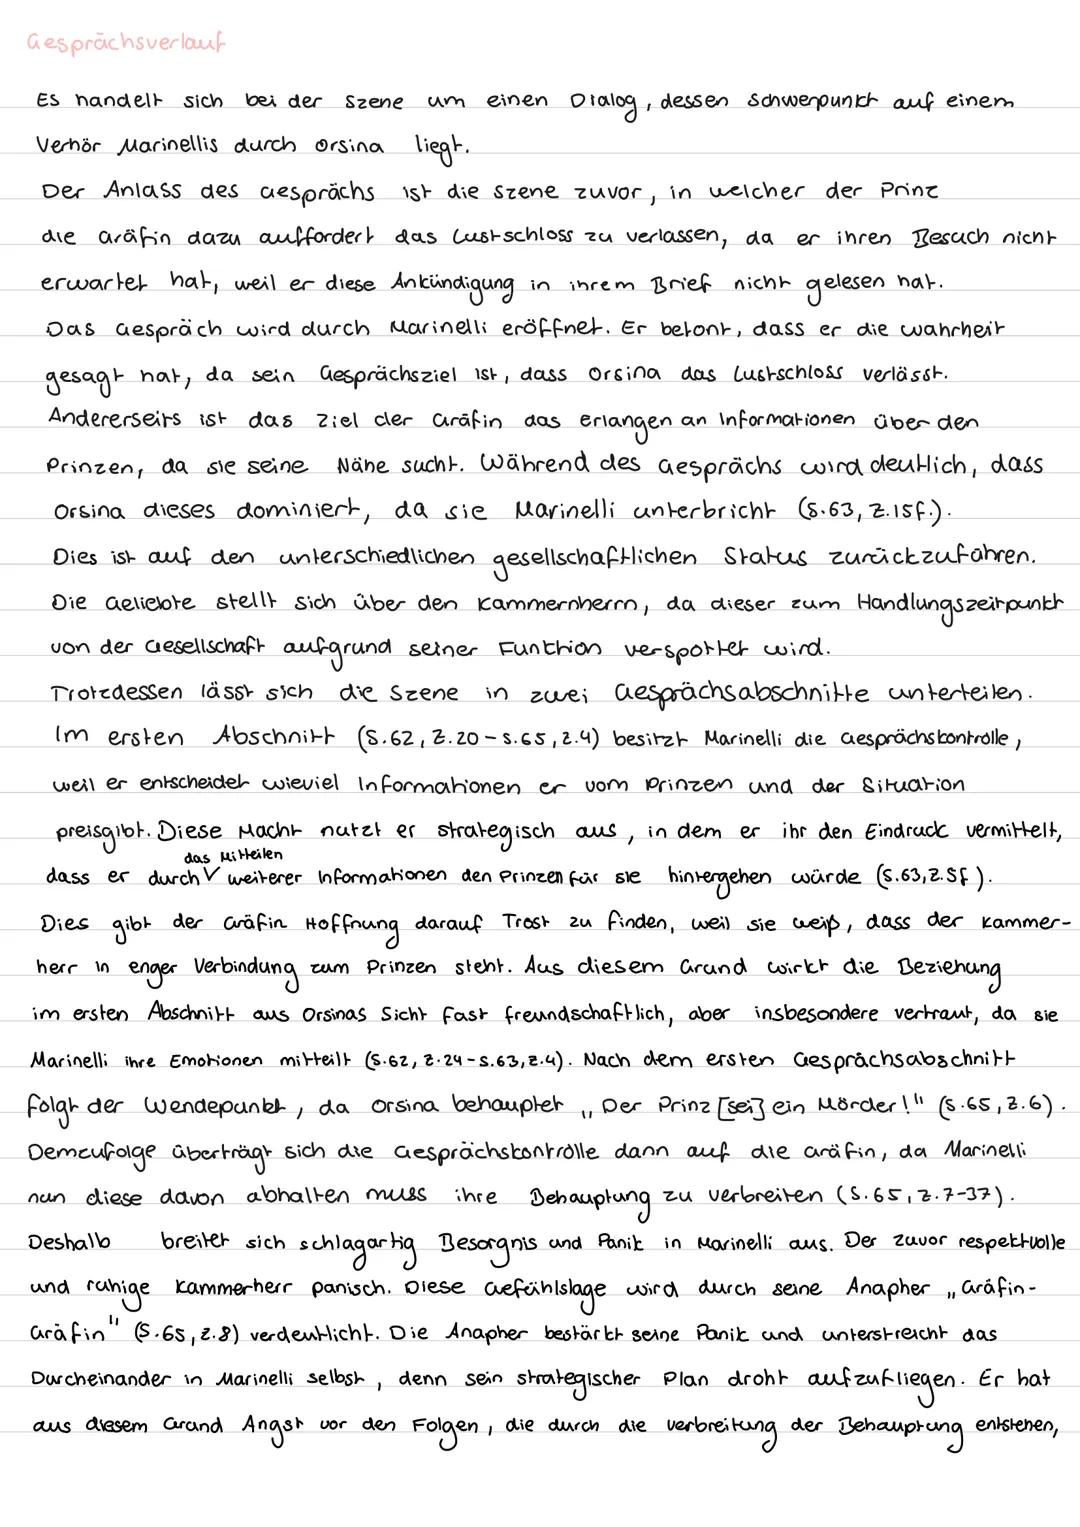 Gesprächsverlauf
Es handelt sich bei der Szene um einen Dialog, dessen Schwerpunkt auf einem
Verhör Marinellis durch Orsina liegt.
Der Anlass des Gesprächs ist die Szene zuvor, in welcher der Prinz
die Gräfin dazu auffordert das Lustschloss zu verlassen, da er ihren Besuch nicht
erwartet hat, weil er diese Ankündigung in ihrem Brief nicht gelesen hat.
Das Gespräch wird durch Marinelli eröffnet. Er betont, dass er die Wahrheit
gesagt hat, da sein Gesprächsziel ist, dass Orsina das Lustschloss verlässt.
Andererseits ist das Ziel der Gräfin das Erlangen an Informationen über den
Prinzen, da sie seine Nähe sucht. Während des Gesprächs wird deutlich, dass
Orsina dieses dominiert, da sie Marinelli unterbricht (S.63, Z.15f.).
Dies ist auf den unterschiedlichen gesellschaftlichen Status zurückzuführen.
Die Geliebte stellt sich über den Kammernherrn, da dieser zum Handlungszeitpunkt
von der Gesellschaft aufgrund seiner Funktion verspottet wird.
Trotzdessen lässt sich die Szene in zwei Gesprächsabschnitte unterteilen.
Im ersten Abschnitt (S.62, Z.20-S.65, Z.4) besitzt Marinelli die Gesprächskontrolle,
weil er entscheidet wieviel Informationen er vom Prinzen und der Situation
preisgibt. Diese Macht nutzt er strategisch aus, in dem er ihr den Eindruck vermittelt,
das Mitteilen
dass er durch √ weiterer Informationen den Prinzen für sie hintergehen würde (S.63, Z.5f).
Dies gibt der Gräfin Hoffnung darauf Trost zu finden, weil sie weiß, dass der Kammer-
herr in enger Verbindung zum Prinzen steht. Aus diesem Grund wirkt die Beziehung
im ersten Abschnitt aus Orsinas Sicht fast freundschaftlich, aber insbesondere vertraut, da sie
Marinelli ihre Emotionen mitteilt (S.62, Z.24-S.63, Z.4). Nach dem ersten Gesprächsabschnitt
folgt der Wendepunkt, da Orsina behauptet „Der Prinz [sei] ein Mörder!" (S.65, Z.6).
Demzufolge überträgt sich die Gesprächskontrolle dann auf die Gräfin, da Marinelli
nun diese davon abhalten muss ihre Behauptung zu verbreiten (S.65, Z.7-37).
Deshalb breitet sich schlagartig Besorgnis und Panik in Marinelli aus. Der zuvor respektvolle
und ruhige Kammerherr panisch. Diese Gefühlslage wird durch seine Anapher „Gräfin-
Gräfin" (S.65, Z.8) verdeutlicht. Die Anapher bestärkt seine Panik und unterstreicht das
Durcheinander in Marinelli selbst, denn sein strategischer Plan droht aufzufliegen. Er hat
aus diesem Grund Angst vor den Folgen, die durch die Verbreitung der Behauptung entstehen,